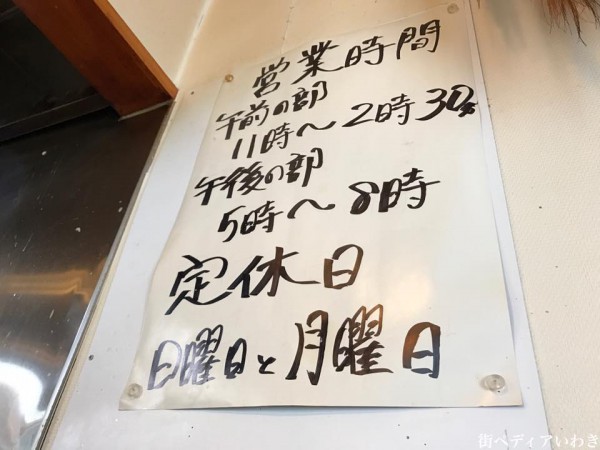 営業時間
午前の部
11時〜2時30分
午後の部
5時〜8時
定休日
日曜日と月曜日
街ペディアいわき